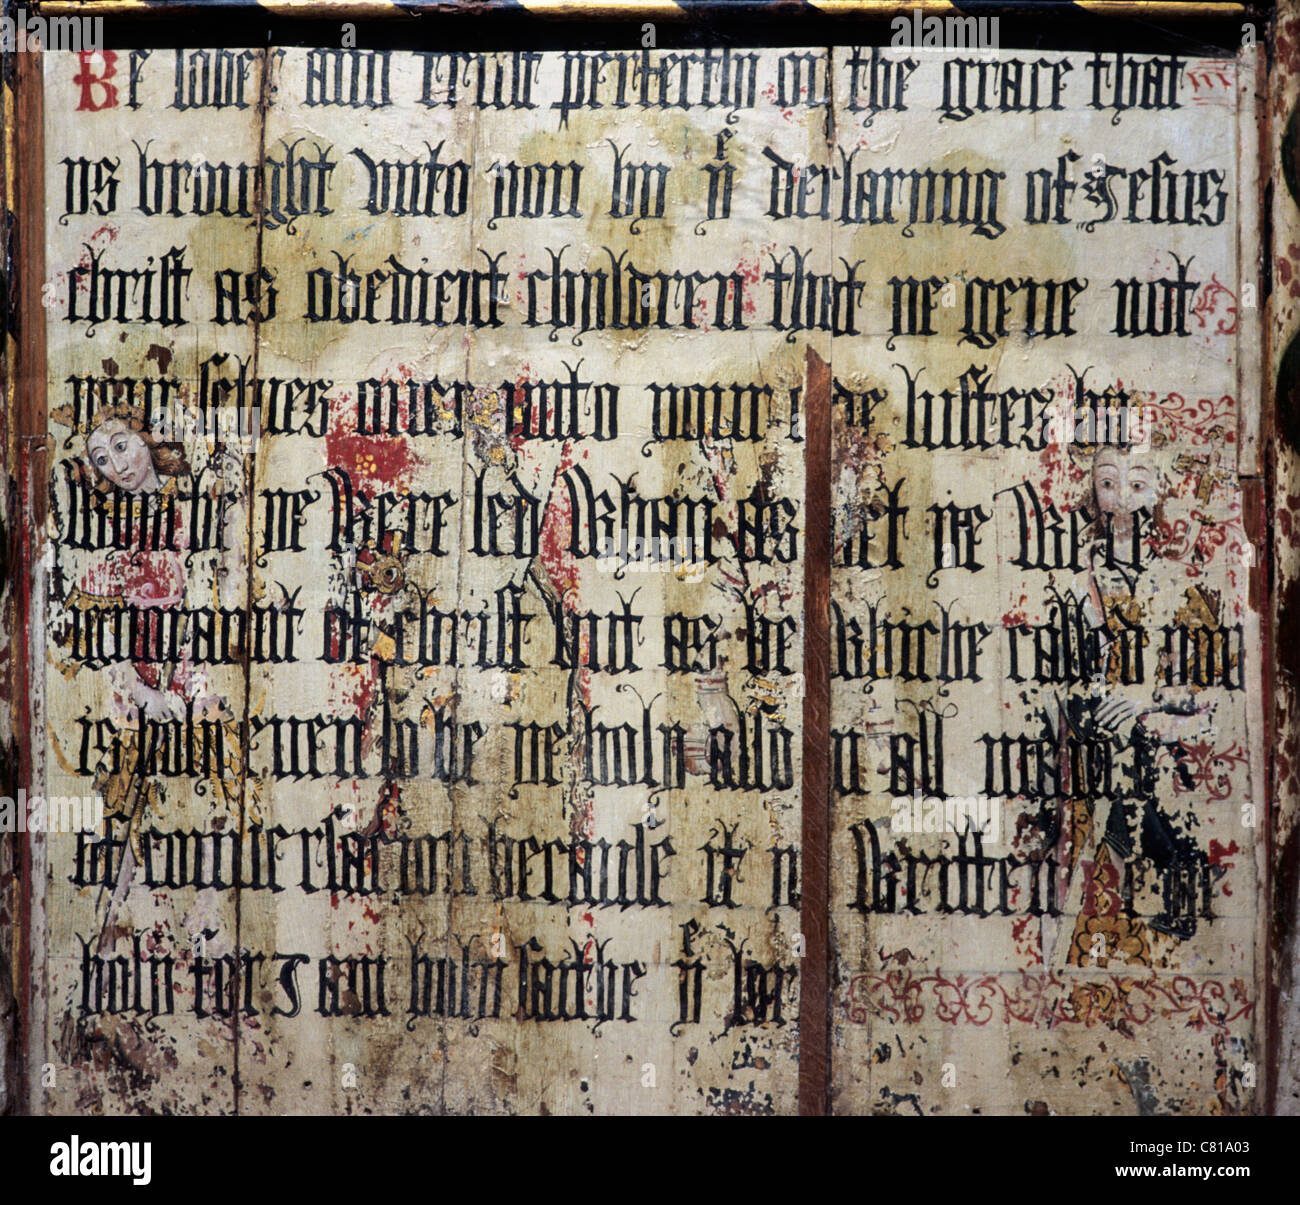 Be sober and trust perfectly on the grace that
ys brought vnto you by yͤ declaryng of Jesus
christ as obedient chyldren that ye geue not
your selues ouer vnto your olde lustes by
Whyche ye Were led Whan as yet ye Were
ignorannt of christ but as he Whiche called you
is holy euen so be ye holy also in all maner
of conuersacion because it is Written Be ye
holy for I am holy saithe yͤ lor
alamy
Image ID: C81A03
www.alamy.com